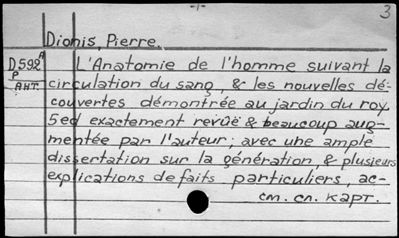 -1-
3
Dionis, Pierre.
D592 A L'Anatomie de l'homme suivant la
P circulation du sang, & les nouvelles dé-
АНТ. couvertes démontrée au jardin du roy.
5ed exactement revüë & beaucoup aug-
mentée par l'auteur; avec une ample
dissertation sur la génération, & plusieurs
explications de faits particuliers, ac-
см. сл. карт.